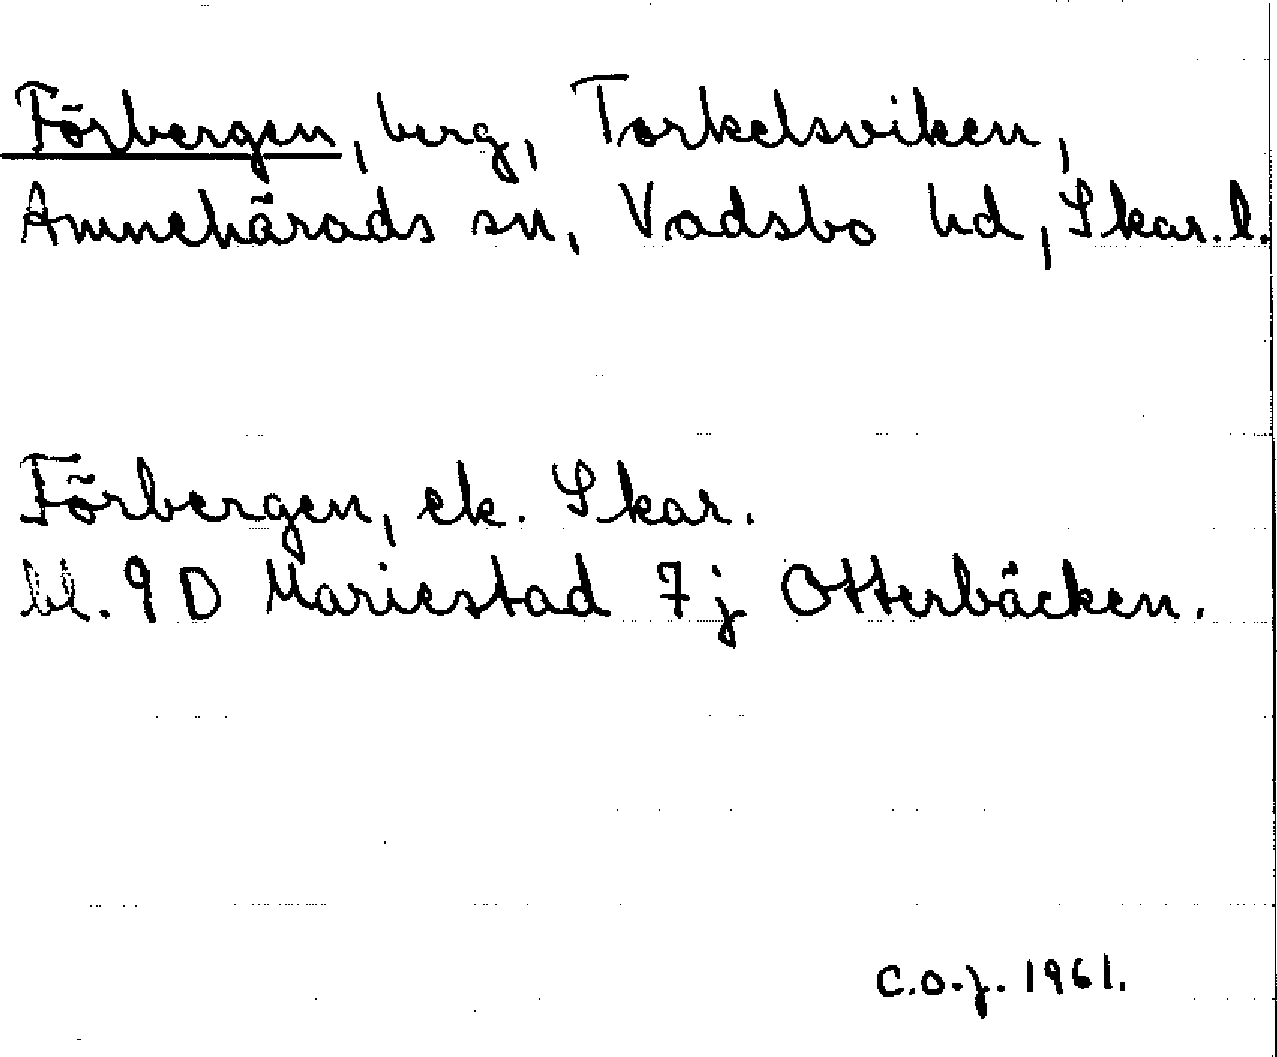 Förbergen, berg, Torkelsviken,
Amnehärads sn, Vadsbo hd, Skar. l.
Förbergen, ek. Skar.
bl. 9 D Mariestad 7j Otterbäcken.
C.O.J. 1961.